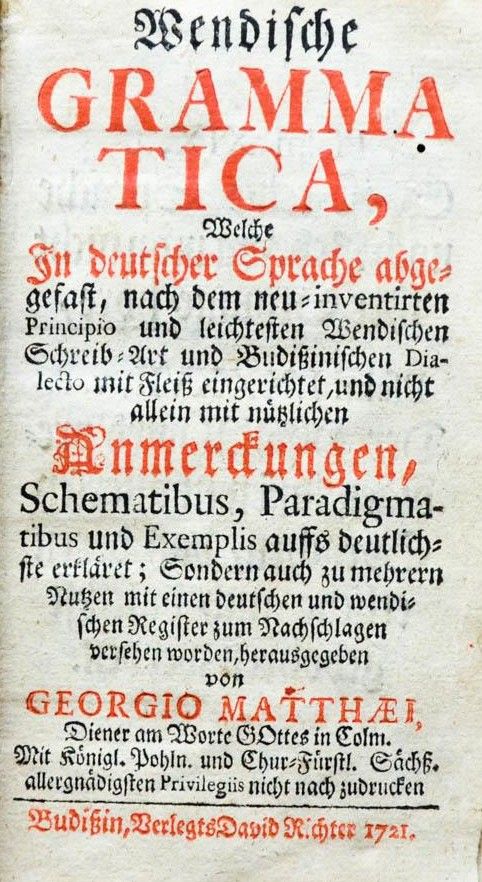 Wendiſche
GRAMMA
TICA,
Welche
In deutſcher Sprache abge-
gefaſt, nach dem neu-inventirten
Principio und leichteſten Wendiſchen
Schreib-Art und Budißiniſchen Dia-
lecto mit Fleiß eingerichtet, und nicht
allein mit nützlichen
Anmerckungen,
Schematibus, Paradigma-
tibus und Exemplis auffs deutlich-
ſte erkläret; Sondern auch zu mehrern
Nutzen mit einen deutſchen und wendi-
ſchen Regiſter zum Nachſchlagen
verſehen worden, herausgegeben
von
GEORGIO MATTHÆI,
Diener am Worte GOttes in Colm.
Mit Königl. Pohln. und Chur-Fürſtl. Sächß.
allergnädigſten Privilegiis nicht nach zudrucken
Budißin, Verlegts David Richter 1721.